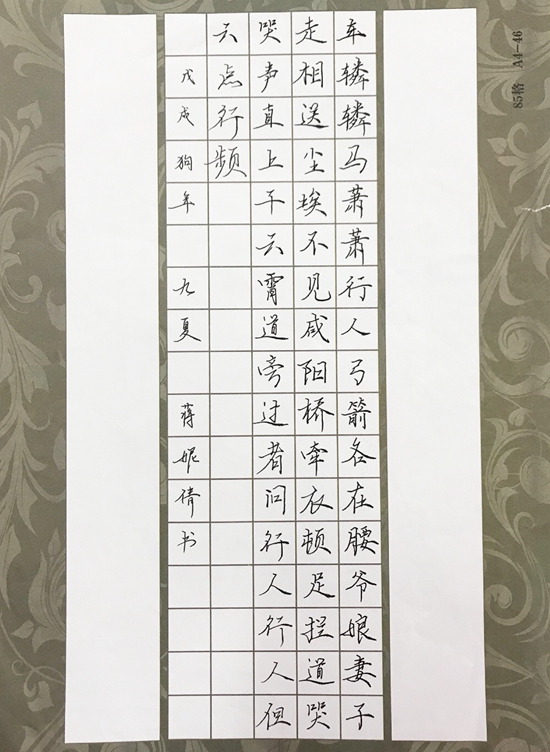 车辚辚马萧萧行人弓箭各在腰爷娘妻子
走相送尘埃不见咸阳桥牵衣顿足拦道哭
哭声直上干云霄道旁过者问行人行人但
云点行频
戊戌狗年 九夏 蒋妮倩书
85格 A4-46